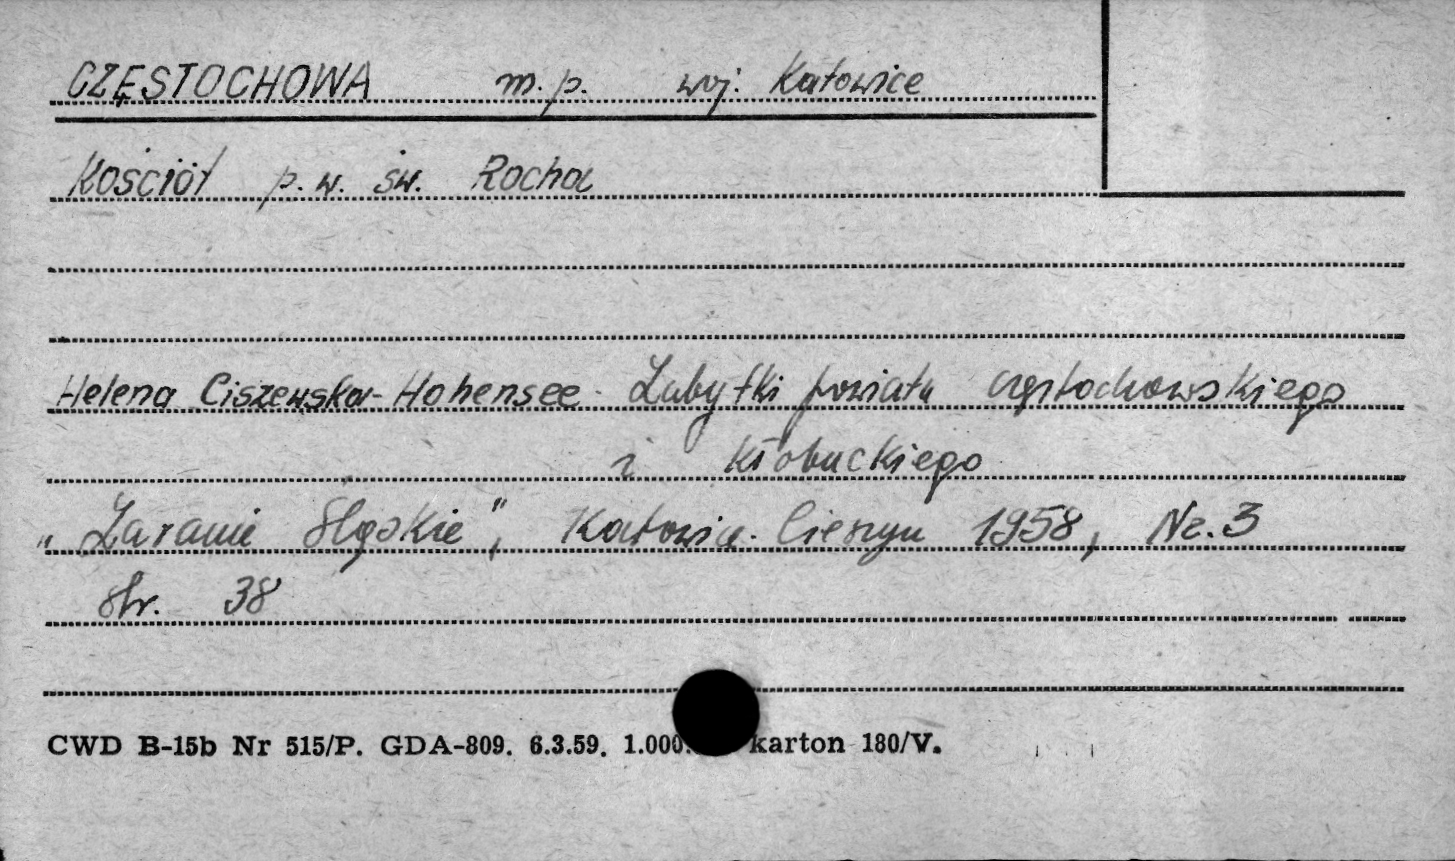 CZĘSTOCHOWA m.p. woj. Katowice
Kościół p.w. św. Rocha
Helena Ciszewska-Hohensee - Zabytki powiatu częstochowskiego
i Kłobuckiego
„Zaranie Śląskie", Katowice - Cieszyn 1958, Nr. 3
str. 38
CWD B-15b Nr 515/P. GDA-809. 6.3.59. 1.000. karton 180/V.